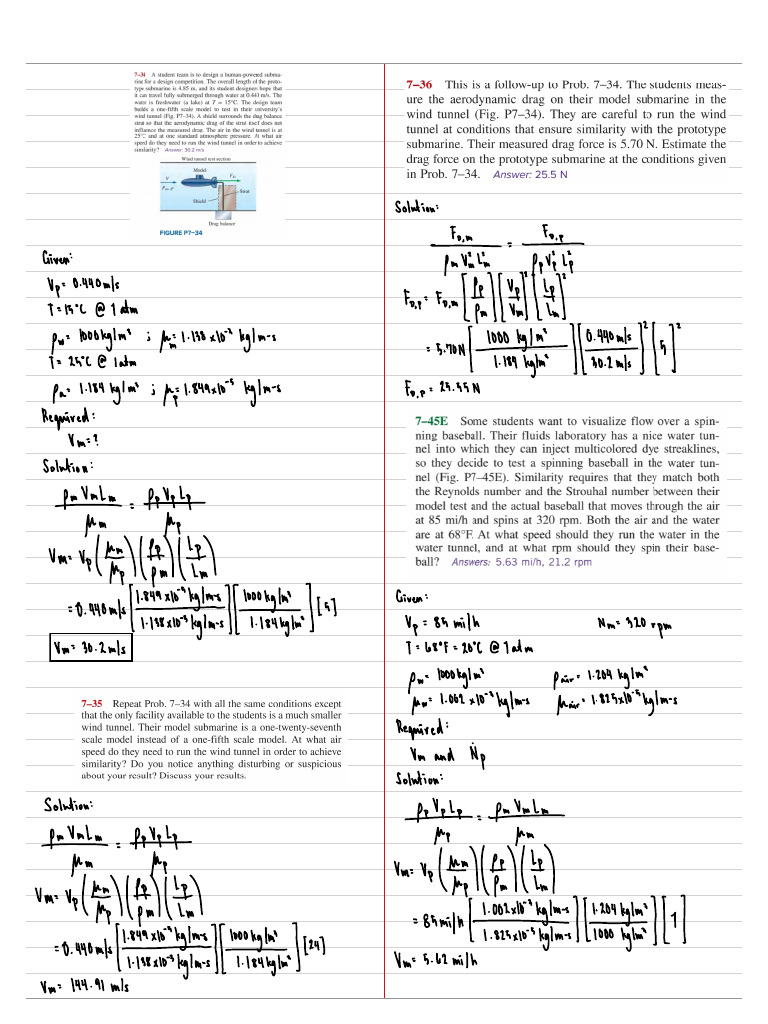 7–34 A student team is to design a human-powered subma-
rine for a design competition. The overall length of the proto-
type submarine is 4.85 m, and its student designers hope that
it can travel fully submerged through water at 0.440 m/s. The
water is freshwater (a lake) at T = 15°C. The design team
builds a one-fifth scale model to test in their university's
wind tunnel (Fig. P7–34). A shield surrounds the drag balance
strut so that the aerodynamic drag of the strut itself does not
influence the measured drag. The air in the wind tunnel is at
25°C and at one standard atmosphere pressure. At what air
speed do they need to run the wind tunnel in order to achieve
similarity? Answer: 30.2 m/s
Wind tunnel test section
Model
V
F_D
Strut
Shield
Drag balance
FIGURE P7–34
Given:
V_p = 0.440 m/s
T = 15°C @ 1 atm
ρ_w = 1000 kg/m³ ; μ_m = 1.138 x10⁻³ kg/m-s
T = 25°C @ 1atm
ρ_a = 1.184 kg/m³ ; μ_p = 1.849x10⁻⁵ kg/m-s
Required:
V_m = ?
Solution:
ρ_m V_m L_m / μ_m = ρ_p V_p L_p / μ_p
V_m = V_p (μ_m / μ_p) (ρ_p / ρ_m) (L_p / L_m)
= 0.440 m/s [1.849 x10⁻⁵ kg/m-s / 1.138 x10⁻³ kg/m-s] [1000 kg/m³ / 1.184 kg/m³] [5]
V_m = 30.2 m/s
7–35 Repeat Prob. 7–34 with all the same conditions except
that the only facility available to the students is a much smaller
wind tunnel. Their model submarine is a one-twenty-seventh
scale model instead of a one-fifth scale model. At what air
speed do they need to run the wind tunnel in order to achieve
similarity? Do you notice anything disturbing or suspicious
about your result? Discuss your results.
Solution:
ρ_m V_m L_m / μ_m = ρ_p V_p L_p / μ_p
V_m = V_p (μ_m / μ_p) (ρ_p / ρ_m) (L_p / L_m)
= 0.440 m/s [1.849 x10⁻⁵ kg/m-s / 1.138 x10⁻³ kg/m-s] [1000 kg/m³ / 1.184 kg/m³] [24]
V_m = 144.91 m/s
7–36 This is a follow-up to Prob. 7–34. The students meas-
ure the aerodynamic drag on their model submarine in the
wind tunnel (Fig. P7–34). They are careful to run the wind
tunnel at conditions that ensure similarity with the prototype
submarine. Their measured drag force is 5.70 N. Estimate the
drag force on the prototype submarine at the conditions given
in Prob. 7–34. Answer: 25.5 N
Solution:
F_D,m / ρ_m V_m² L_m² = F_D,p / ρ_p V_p² L_p²
F_D,p = F_D,m [ρ_p / ρ_m] [V_p / V_m]² [L_p / L_m]²
= 5.70 N [1000 kg/m³ / 1.184 kg/m³] [0.440 m/s / 30.2 m/s]² [5]²
F_D,p = 25.55 N
7–45E Some students want to visualize flow over a spin-
ning baseball. Their fluids laboratory has a nice water tun-
nel into which they can inject multicolored dye streaklines,
so they decide to test a spinning baseball in the water tun-
nel (Fig. P7–45E). Similarity requires that they match both
the Reynolds number and the Strouhal number between their
model test and the actual baseball that moves through the air
at 85 mi/h and spins at 320 rpm. Both the air and the water
are at 68°F. At what speed should they run the water in the
water tunnel, and at what rpm should they spin their base-
ball? Answers: 5.63 mi/h, 21.2 rpm
Given:
V_p = 85 mi/h N_m = 320 rpm
T = 68°F = 20°C @ 1 atm
ρ_w = 1000 kg/m³ ρ_air = 1.204 kg/m³
μ_w = 1.002 x10⁻³ kg/m-s μ_air = 1.825x10⁻⁵ kg/m-s
Required:
V_m and Ṅ_p
Solution:
ρ_p V_p L_p / μ_p = ρ_m V_m L_m / μ_m
V_m = V_p (μ_m / μ_p) (ρ_p / ρ_m) (L_p / L_m)
= 85 mi/h [1.002 x10⁻³ kg/m-s / 1.825 x10⁻⁵ kg/m-s] [1.204 kg/m³ / 1000 kg/m³] [1]
V_m = 5.62 mi/h